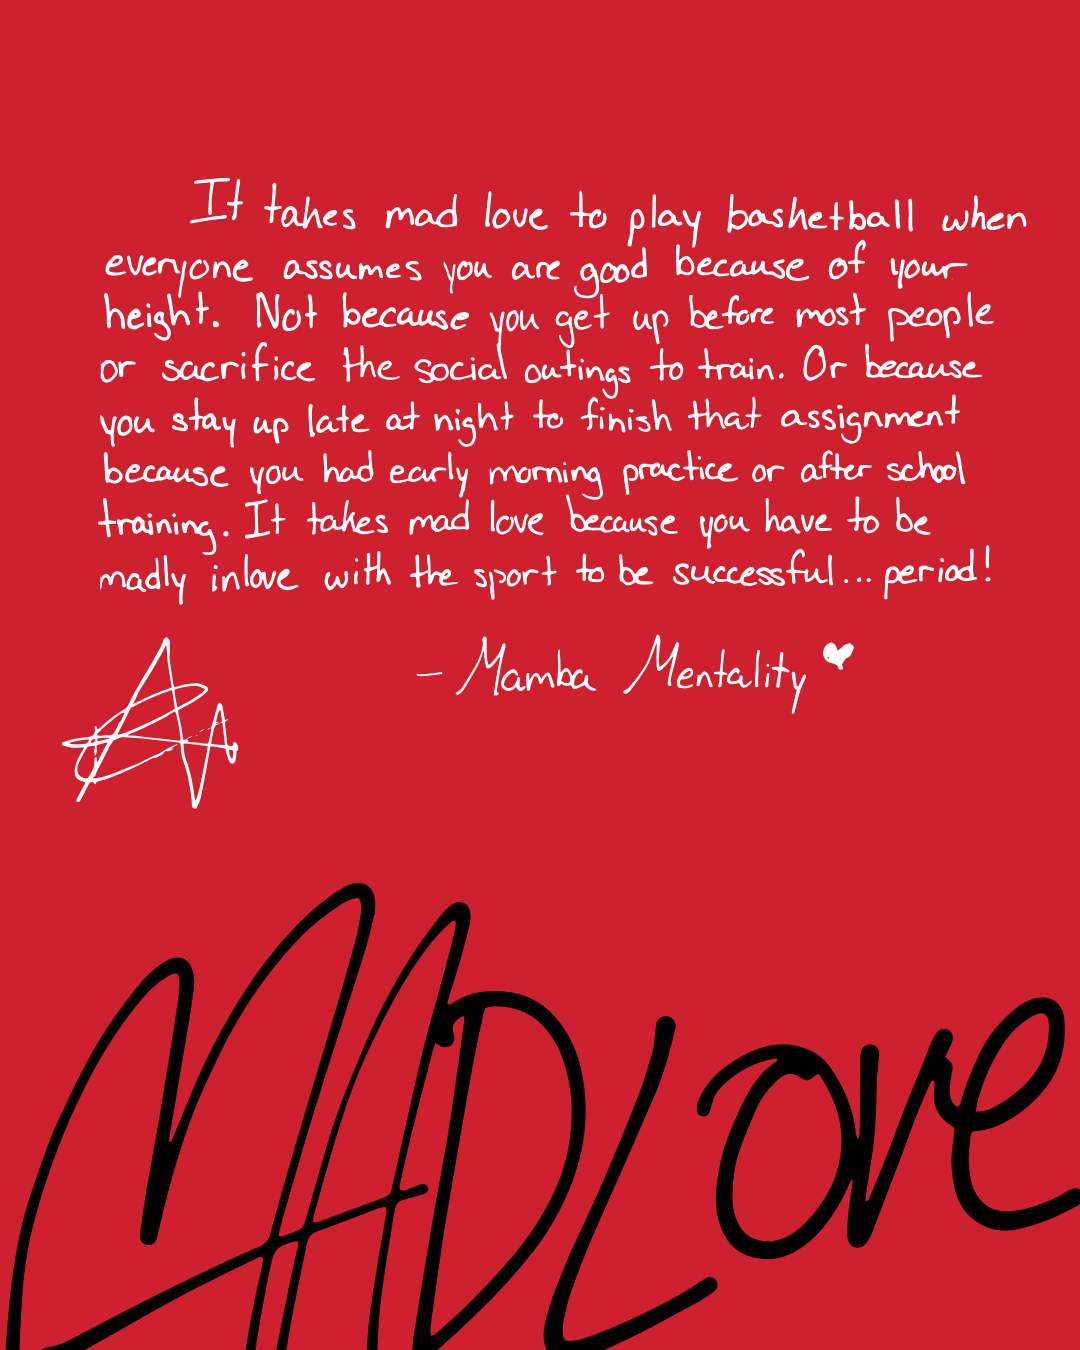 It takes mad love to play basketball when
everyone assumes you are good because of your
height. Not because you get up before most people
or sacrifice the social outings to train. Or because
you stay up late at night to finish that assignment
because you had early morning practice or after school
training. It takes mad love because you have to be
madly inlove with the sport to be successful... period!
- Mamba Mentality
MADLove